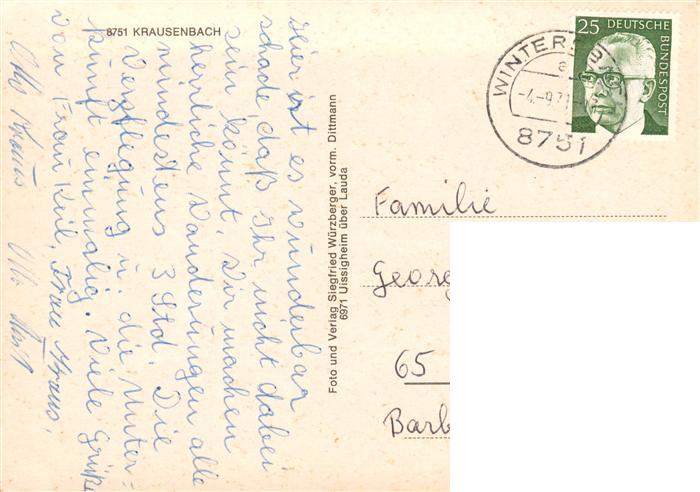 8751 KRAUSENBACH
Hier ist es wunderbar
schade, daß Ihr nicht dabei
sein könnt. Wir machen
herrliche Wanderungen alle
mindestens 3 Std. Die
Verpflegung u. die Unter=
kunft einmalig. Viele Grüße
von Frau Keil, Frau Kraus,
Otto Kraus Otto
Foto und Verlag Siegfried Würzberger, vorm. Dittmann
6971 Uissigheim über Lauda
25 DEUTSCHE
BUNDESPOST
WINTERSBACH
a
-4.-9.71
8751
Familie
Georg
65
Barb